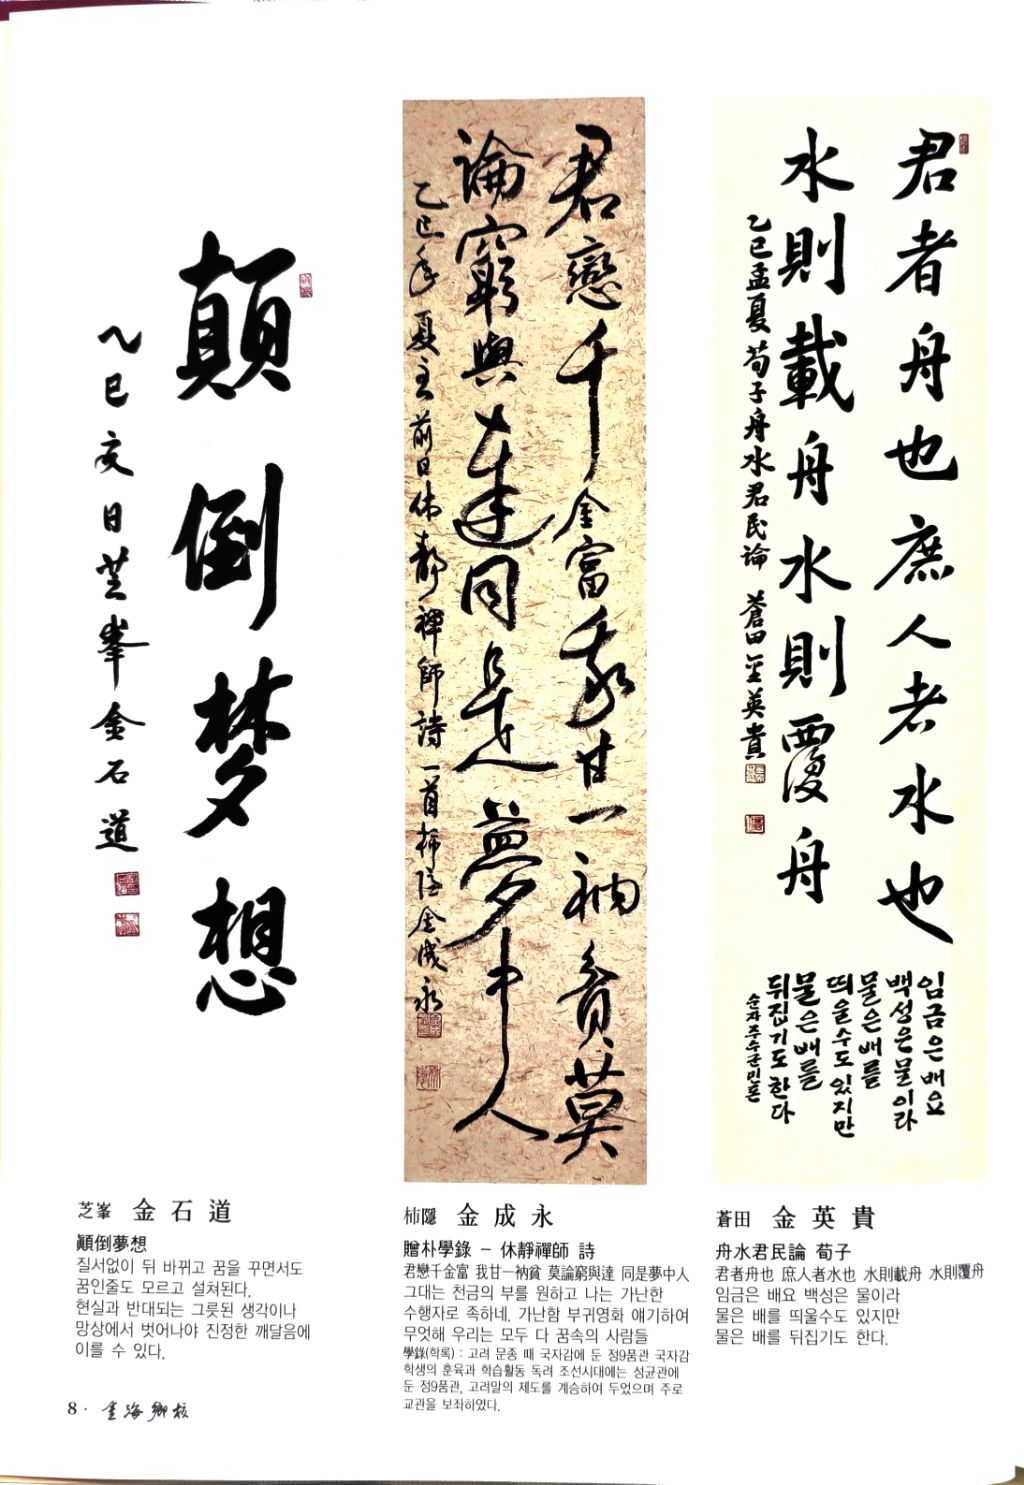 君者舟也庶人者水也
水則載舟水則覆舟
乙巳孟夏 荀子舟水君民論 蒼田 金英貴
임금은 배요
백성은 물이라
물은 배를
띄울수도 있지만
물은 배를
뒤집기도 한다
순자 주수군민론
君戀千金富我甘一衲貧莫
論窮與達同是夢中人
乙巳年 夏 主前日 休靜禪師詩一首 柿隱 金成永
顚倒梦想
乙巳 亥日 芝峯 金石道
芝峯 金石道
顚倒夢想
질서없이 뒤 바뀌고 꿈을 꾸면서도
꿈인줄도 모르고 설쳐된다.
현실과 반대되는 그릇된 생각이나
망상에서 벗어나야 진정한 깨달음에
이를 수 있다.
柿隱 金成永
贈朴學錄 – 休靜禪師 詩
君戀千金富 我甘一衲貧 莫論窮與達 同是夢中人
그대는 천금의 부를 원하고 나는 가난한
수행자로 족하네. 가난함 부귀영화 얘기하여
무엇해 우리는 모두 다 꿈속의 사람들
學錄(학록) : 고려 문종 때 국자감에 둔 정9품관 국자감
학생의 훈육과 학습활동 독려 조선시대에는 성균관에
둔 정9품관, 고려말의 제도를 계승하여 두었으며 주로
교관을 보좌하였다.
蒼田 金英貴
舟水君民論 荀子
君者舟也 庶人者水也 水則載舟 水則覆舟
임금은 배요 백성은 물이라
물은 배를 띄울수도 있지만
물은 배를 뒤집기도 한다.
8 · 金海鄕校